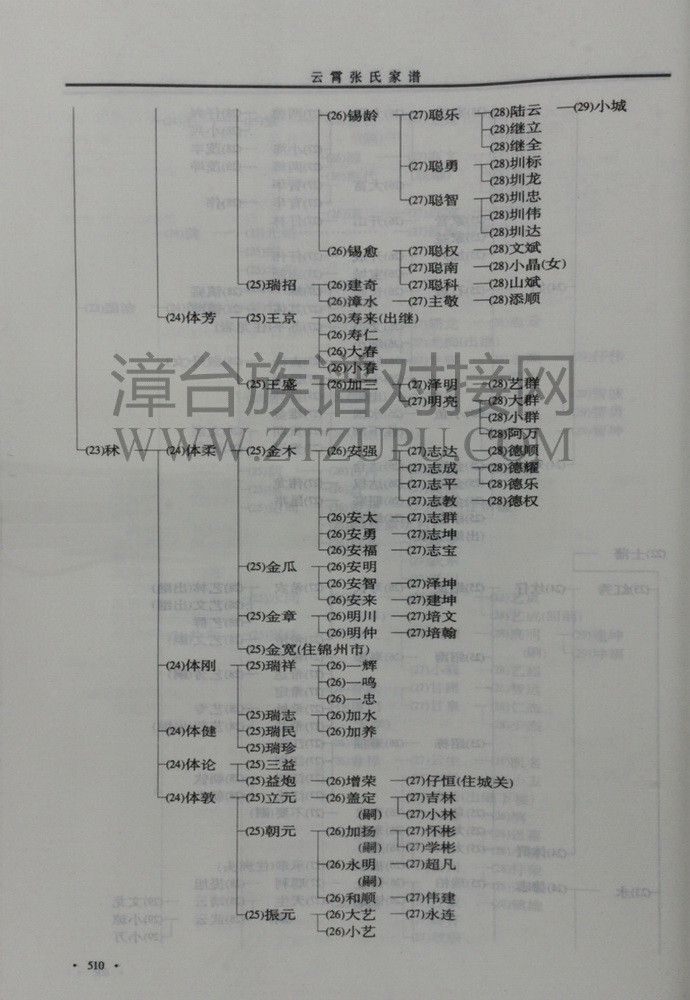 云霄张氏家谱
(26)锡龄 (27)聪乐 (28)陆云 (29)小城
(28)继立
(28)继全
(27)聪勇 (28)圳标
(28)圳龙
(27)聪智 (28)圳忠
(28)圳伟
(28)圳达
(26)锡愈 (27)聪权 (28)文斌
(27)聪南 (28)小晶(女)
(25)瑞招 (26)建奇 (27)聪科 (28)山斌
(26)漳水 (27)主敬 (28)添顺
(24)体芳 (25)王京 (26)寿来(出继)
(26)寿仁
(26)大春
(26)小春
(25)王盛 (26)加三 (27)泽明 (28)艺群
(27)明亮 (28)大群
(28)小群
(28)阿万
(23)秫 (24)体柔 (25)金木 (26)安强 (27)志达 (28)德顺
(27)志成 (28)德耀
(27)志平 (28)德乐
(27)志教 (28)德权
(26)安太 (27)志群
(26)安勇 (27)志坤
(26)安福 (27)志宝
(25)金瓜 (26)安明
(26)安智 (27)泽坤
(26)安来 (27)建坤
(25)金章 (26)明川 (27)培文
(26)明仲 (27)培翰
(25)金宽(住锦州市)
(24)体刚 (25)瑞祥 (26)一辉
(26)一鸣
(26)一忠
(25)瑞志 (26)加水
(24)体健 (25)瑞民 (26)加养
(25)瑞珍
(24)体论 (25)三益
(25)益炮 (26)增荣 (27)仔恒(住城关)
(24)体敦 (25)立元 (26)盖定 (27)吉林
(嗣) (27)小林
(25)朝元 (26)加扬 (27)怀彬
(嗣) (27)学彬
(26)永明 (27)超凡
(嗣)
(26)和顺 (27)伟建
(25)振元 (26)大艺 (27)永连
(26)小艺
· 510 ·
漳台族谱对接网
WWW.ZTZUPU.COM